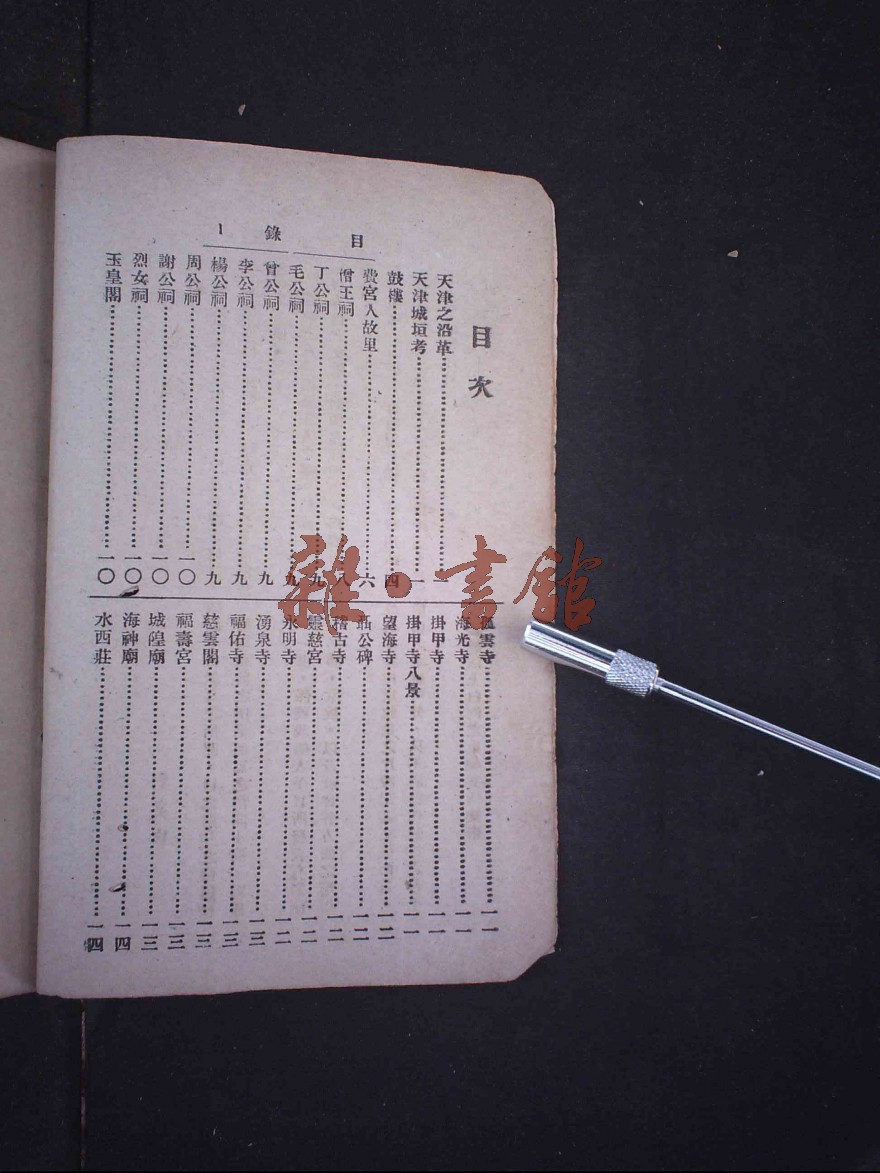 目錄 1
目次
天津之沿革……一
天津城垣考……一
鼓樓……四
費宮人故里……六
僧王祠……八
丁公祠……九
毛公祠……九
曾公祠……九
李公祠……九
楊公祠……九
周公祠……一〇
謝公祠……一〇
烈女祠……一〇
玉皇閣……一〇
雲寺……一一
海光寺……一一
掛甲寺……一一
掛甲寺八景……一一
望海寺……一二
聶公碑……一二
稽古寺……一二
靈慈宮……一二
永明寺……一二
湧泉寺……一三
福佑寺……一三
慈雲閣……一三
福壽宮……一三
城隍廟……一三
海神廟……一四
水西莊……一四
雜·書館